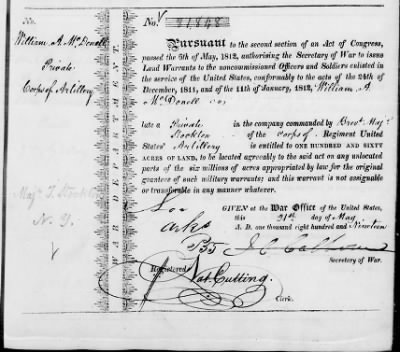 No.
William A. McDonell
Private
Corps of Artillery
Majr T. Stockton
N. Y.
WAR DEPARTMENT.
No. 21848
Pursuant to the second section of an Act of Congress,
passed the 6th of May, 1812, authorising the Secretary of War to issue
Land Warrants to the noncommissioned Officers and Soldiers enlisted in
the service of the United States, conformably to the acts of the 24th of
December, 1811, and of the 11th of January, 1812, William A.
McDonell
late a Private in the company commanded by Brevt Majr
Stockton of the corps of Regiment United
States' Artillery is entitled to ONE HUNDRED AND SIXTY
ACRES OF LAND, to be located agreeably to the said act on any unlocated
parts of the six millions of acres appropriated by law for the original
grantees of such military warrants; and this warrant is not assignable
or transferable in any manner whatever.
GIVEN at the War Office of the United States,
this 21st day of May
A. D. one thousand eight hundred and Nineteen
J C Calhoun
Secretary of War.
Registered
Nat. Cutting.
Clerk.